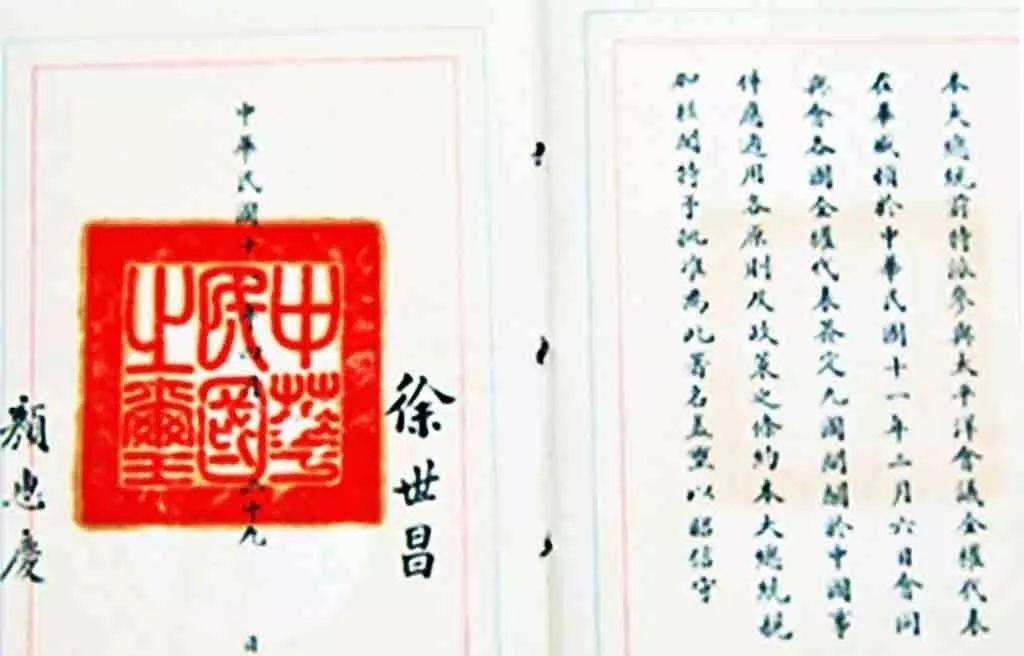 本大總統前特派參與太平洋會議全權代表
在華盛頓於中華民國十一年二月六日會同
與會各國全權代表簽定九國間關於中國事
件應適用各原則及政策之條約本大總統親
加核閱特予批准為此署名蓋璽以昭信守
徐世昌
中華民國十一年四月二十九日
中華民國之璽
顏惠慶